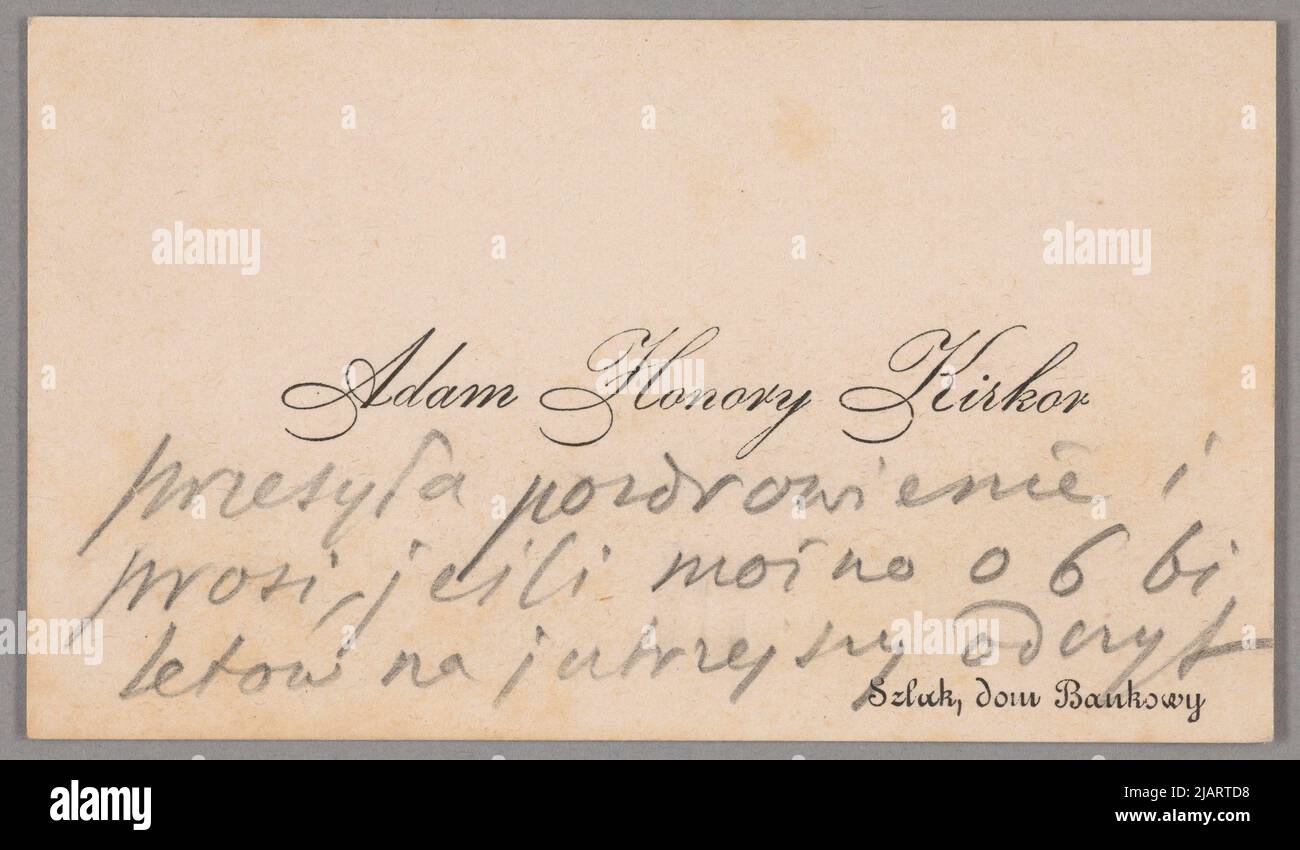 Adam Honory Kirkor
przesyła pozdrowienie i
prosi, jeśli można o 6 bi
letów na jutrzejszy odczyt
Szlak, dom Bankowy
a alamy
alamy
Image ID: 2JARTD8
www.alamy.com